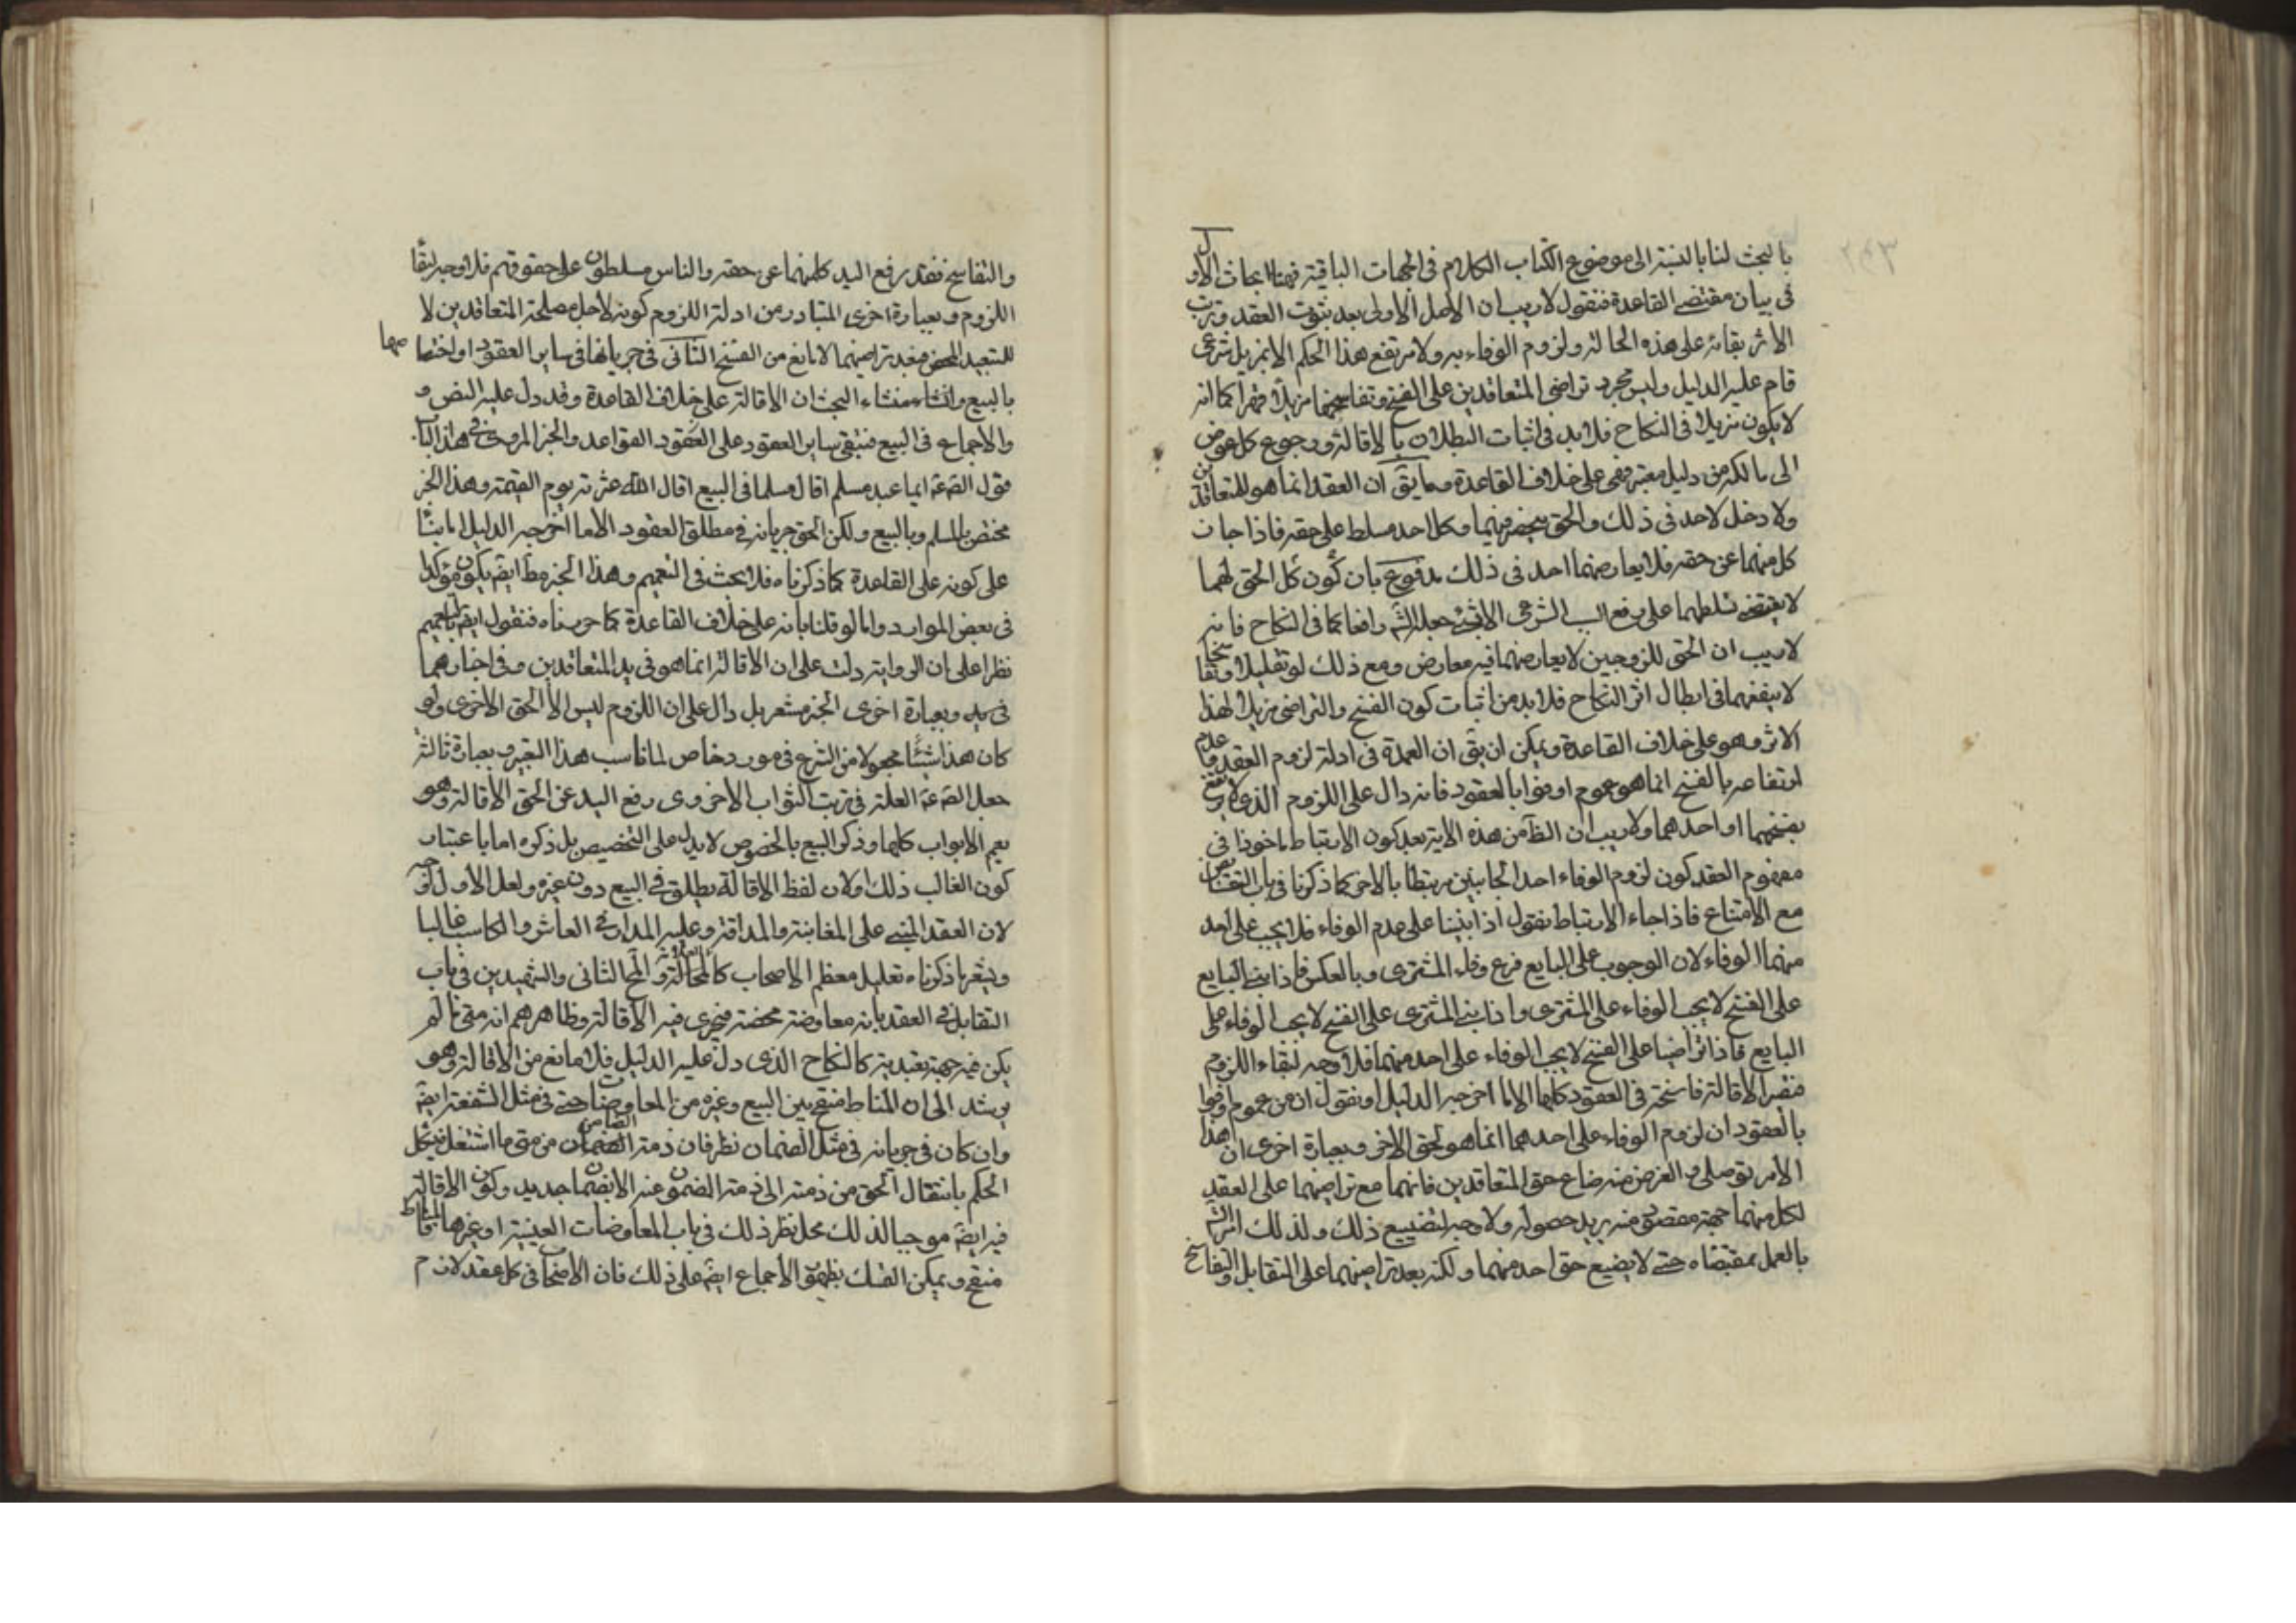 بالبحث لنا بالنسبة الى موضوع الكتاب الكلام فى الجهات الباقية فهنا ابحاث الاول
فى بيان مقتضى القاعدة فنقول لا ريب ان الاصل الاولى بعد ثبوت العقد وترتب
الاثر بقائه على هذه الحالة ولزوم الوفاء به ولا يرتفع هذا الحكم الا بمزيل شرعى
قام عليه الدليل وليس مجرد تراضى المتعاقدين على الفسخ وتفاسخهما مزيلا قهرا كما انه
لا يكون مزيلا فى النكاح فلابد فى اثبات البطلان بالاقالة ورجوع كل عوض
الى مالكه من دليل معتبر فهى على خلاف القاعدة وما يق ان العقد انما هو للمتعاقدين
ولا دخل لاحد فى ذلك والحق منحصر فيهما وكل احد مسلط على حقه فاذا جاز
كل منهما عن حقه فلا يعارضهما احد فى ذلك مدفوع بان كون كل الحق لهما
لا يقتضى تسلطهما على رفع السبب الشرعى الا بجعل الش رافعا كما فى النكاح فانه
لا ريب ان الحق للزوجين لا يعارضهما فيه معارض ومع ذلك لو تقايلا وتفاسخا
لا ينفعهما فى ابطال اثر النكاح فلابد من اثبات كون الفسخ والتراضى مزيلا لهذا
الاثر وهو على خلاف القاعدة ويمكن ان يق ان العمدة فى ادلة لزوم العقد وعدم
ارتفاعه بالفسخ انما هو عموم اوفوا بالعقود فانه دال على اللزوم الذى لا يرتفع
بفسخهما او احدهما ولا ريب ان الظ من هذه الاية بعد كون الارتباط ماخوذا فى
مفهوم العقد كون لزوم الوفاء احد الجانبين مرتبطا بالاخر كما ذكرنا فى باب التقابض
مع الامتناع فاذا جاء الارتباط نقول اذا بنينا على عدم الوفاء فلا يجب على احد
منهما الوفاء لان الوجوب على البايع فرع وفاء المشترى وبالعكس فاذا بنى البايع
على الفسخ لا يجب الوفاء على المشترى واذا بنى المشترى على الفسخ لا يجب الوفاء على
البايع فاذا تراضيا على الفسخ لا يجب الوفاء على احد منهما فلا وجه لبقاء اللزوم
فتصير الاقالة فاسخة فى العقود كلها الا ما اخرجه الدليل او نقول ان من عموم اوفوا
بالعقود ان لزوم الوفاء على احدهما انما هو لحق الاخر وبعبارة اخرى ان هذا
الامر توصلى والغرض منه ضاع حق المتعاقدين فانهما مع تراضيهما على العقد
لكل منهما جهة مقصودة منه يريد حصوله ولا وجه لتضييع ذلك ولذلك امر الش
بالعمل بمقتضاه حتى لا يضيع حق احد منهما ولكنه بعد تراضيهما على التقابل والتفاسخ
والتفاسخ فقد رفع اليد كل منهما عن حقه والناس مسلطون على حقوقهم فلا وجه لبقاء
اللزوم وبعبارة اخرى المتبادر من ادلة اللزوم كونه لاجل مصلحة المتعاقدين لا
للتعبد المحض فبعد تراضيهما لا مانع من الفسخ الثانى فى جريانها فى ساير العقود او اختصاصها
بالبيع وانشاء منشاء البحث ان الاقالة على خلاف القاعدة وقد دل عليه النص و
والاجماع فى البيع فتبقى ساير العقود على العقود القواعد والخبر المروى فى هذا الباب
قول الص ع ايما عبد مسلم اقال مسلما فى البيع اقال الله عثرته يوم القيمة وهذا الخبر
مختص بالمسلم وبالبيع ولكن الحق جريانه فى مطلق العقود الا ما اخرجه الدليل اما بناء
على كونه على القاعدة كما ذكرناه فلا بحث فى التعميم وهذا الخبر مط ايض يكون مؤكدا
فى بعض الموارد واما لو قلنا بانه على خلاف القاعدة كما حررناه فنقول ايض بالتعميم
نظرا على ان الرواية دلت على ان الاقالة انما هو فى يد المتعاقدين وفى اختيارهما
فى يد وبعبارة اخرى الخبر مشعر بل دال على ان اللزوم ليس الا لحق الاخرى ولو
كان هذا شيئا مجعولا من الشرع فى مورد خاص لما ناسب هذا التعبير وبعبارة ثالثة
جعل الص ع العلة فى ترتب الثواب الاخروى رفع اليد عن الحق الاقالة وهو
يعم الابواب كلها وذكر البيع بالخصوص لا يدل على التخصيص بل ذكره اما باعتبار
كون الغالب ذلك او لان لفظ الاقالة يطلق فى البيع دون غيره ولعل الاول اوجه
لان العقد المبنى على المغابنة والمداقة وعليه المدار فى العاش والمكاسب غالبا
ويشعر بما ذكرناه تعليل معظم الاصحاب كالعلامة والمحقق الثانى والشهيدين فى باب
التقابل فى العقد بانه معاوضة محضة فيجرى فيه الاقالة وظاهرهم انه متى ما لم
يكن فيه جهة تعبدية كالنكاح الذى دل عليه الدليل فلا مانع من الاقالة وهو
يرشد الى ان المناط منقح بين البيع وغيره من المعاوضات حتى فى مثل الشفعة ايض
وان كان فى جريانه فى مثل الضمان نظر فان ذمة الضامن من متى ما اشتغل فيشكل
الحكم بانتقال الحق من ذمته الى ذمة المضمون عنه الا بضمان جديد وكون الاقالة
فيه ايض موجبا لذلك محل نظر ذلك فى باب المعاوضات العينية او غيرها فالمناط
منقح ويمكن التمسك بظهور الاجماع ايض على ذلك فان الاصحاب فى كل عقد لازم